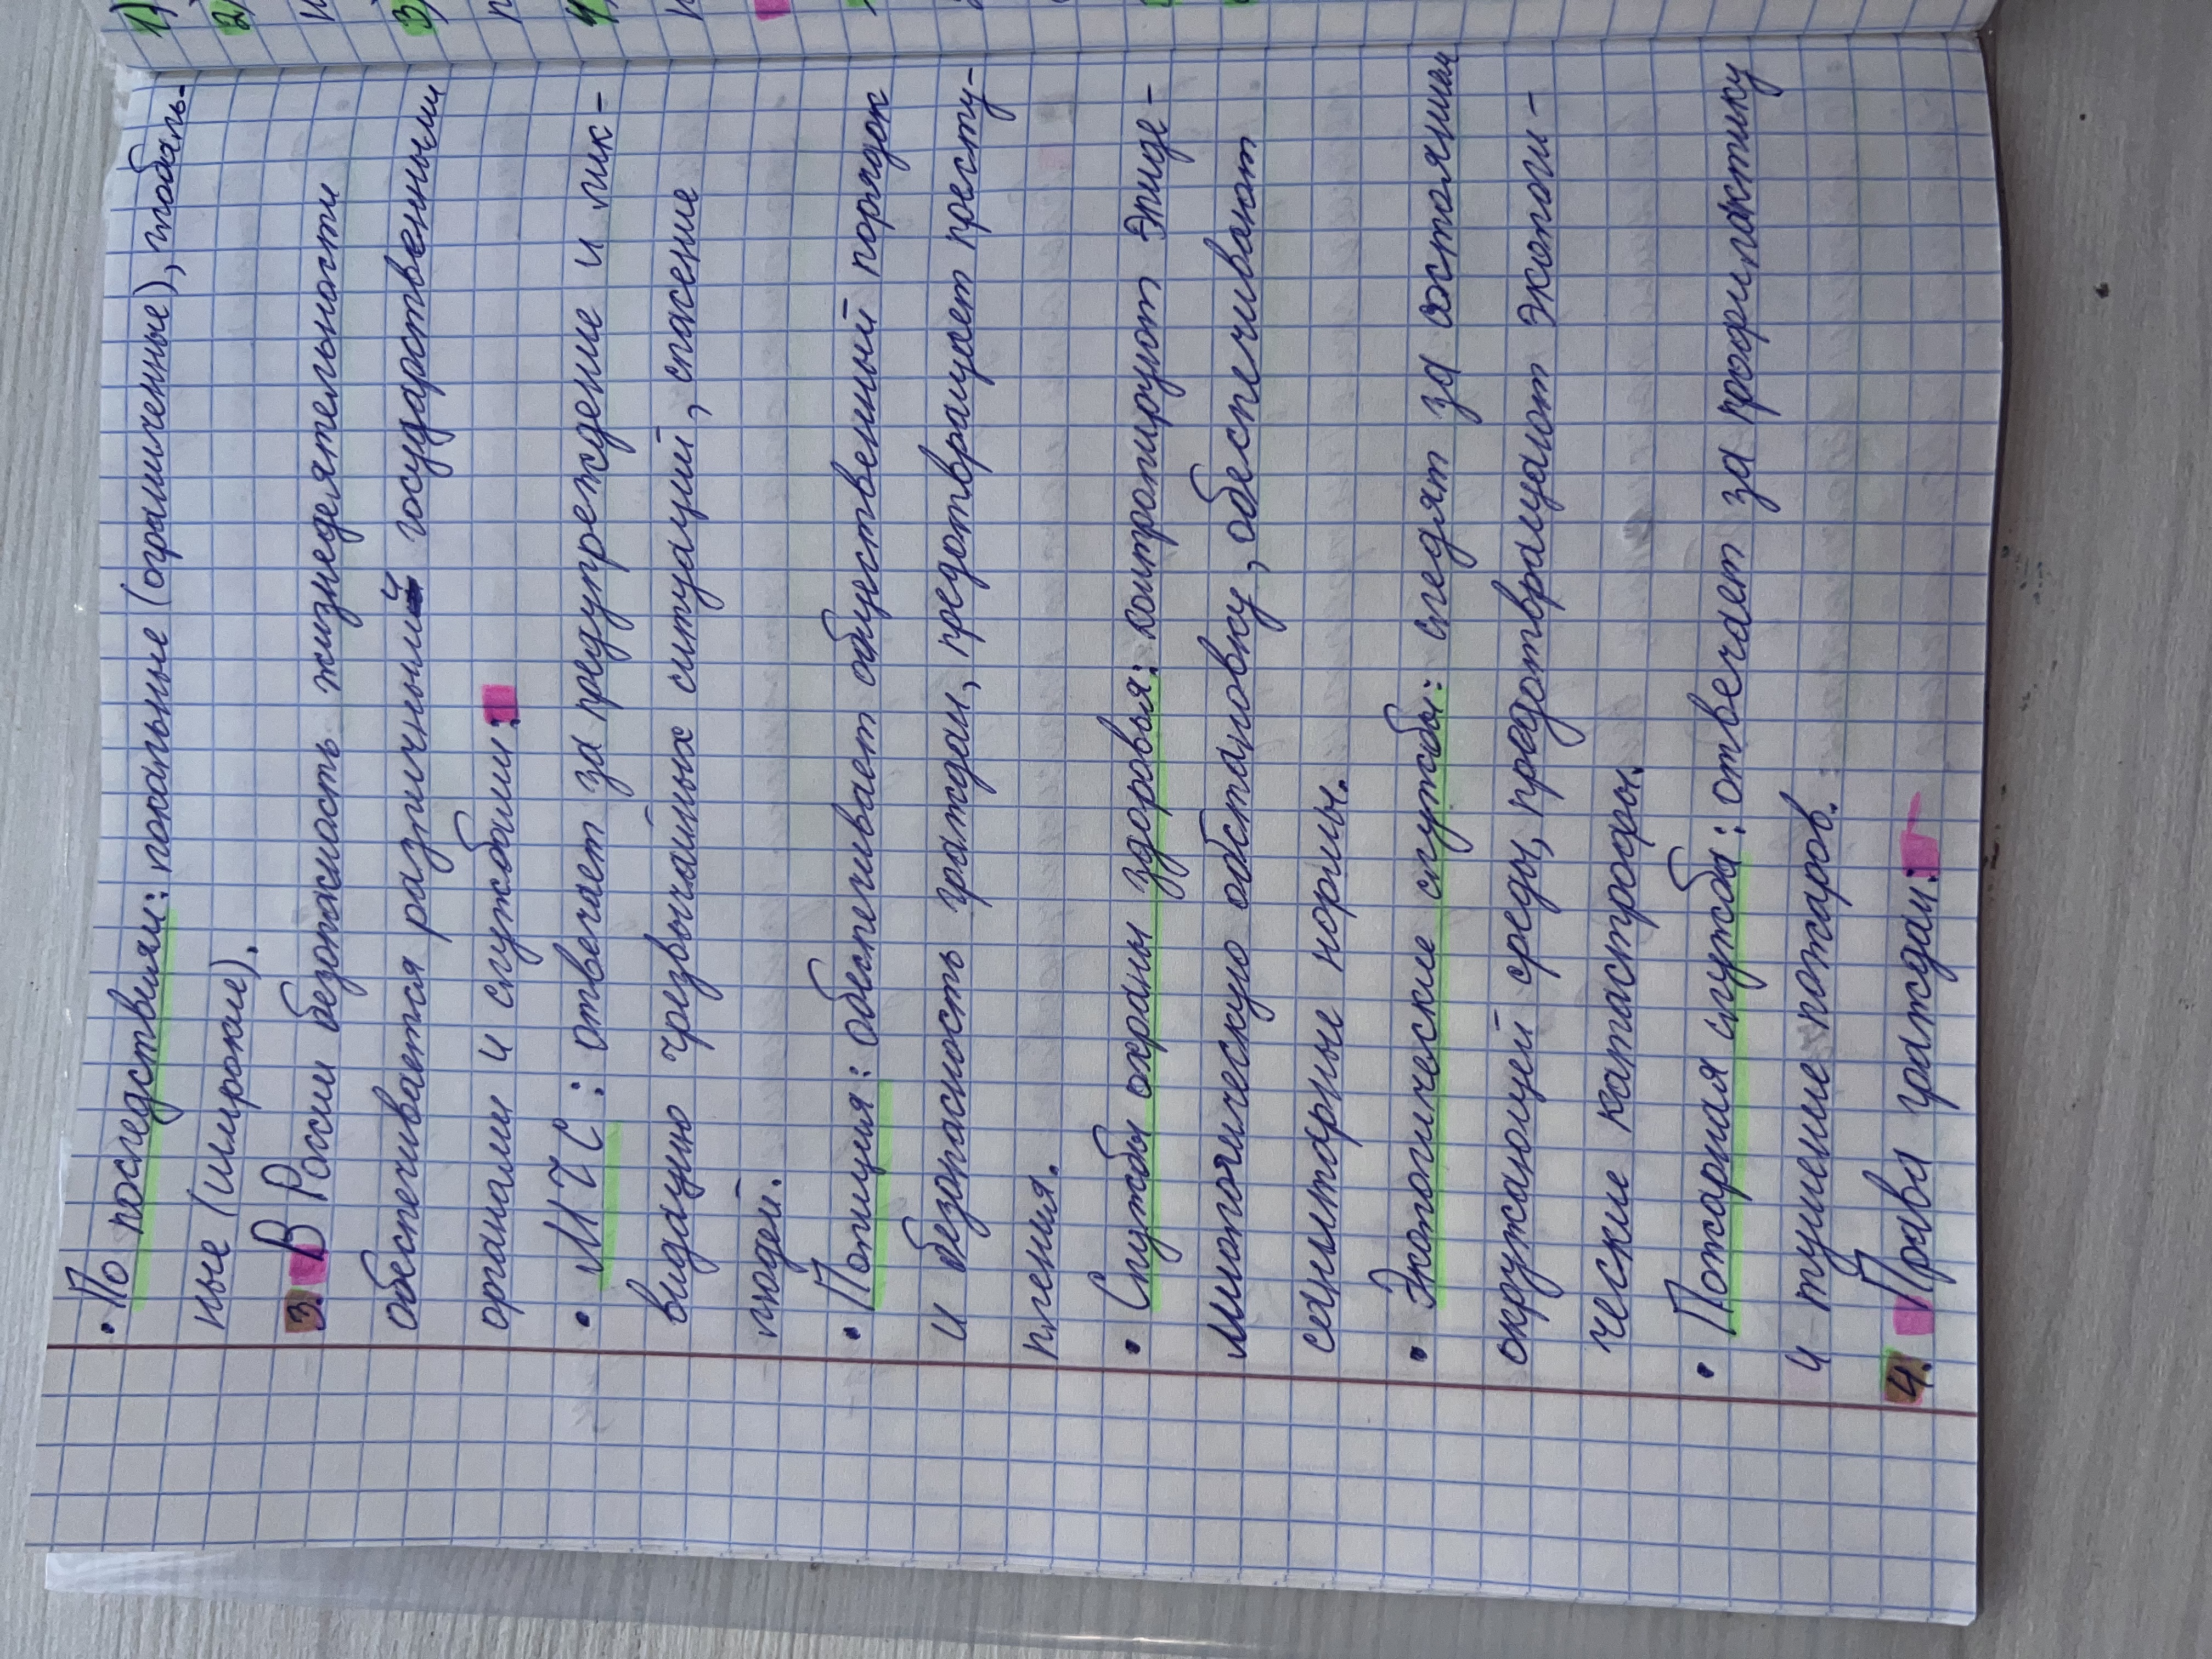 • По последствиям: локальные (ограниченные), глобаль-
ные (широкие).
3. В России безопасность жизнедеятельности
обеспечивается различными государственными
органами и службами:
• МЧС: отвечает за предупреждение и лик-
видацию чрезвычайных ситуаций, спасение
людей.
• Полиция: обеспечивает общественный порядок
и безопасность граждан, предотвращает престу-
пления.
• Службы охраны здоровья: контролируют эпиде-
миологическую обстановку, обеспечивают
санитарные нормы.
• Экологические службы: следят за состоянием
окружающей среды, предотвращают экологи-
ческие катастрофы.
• Пожарная служба: отвечает за профилактику
и тушение пожаров.
4. Права граждан:
1)
2)
3)
4)